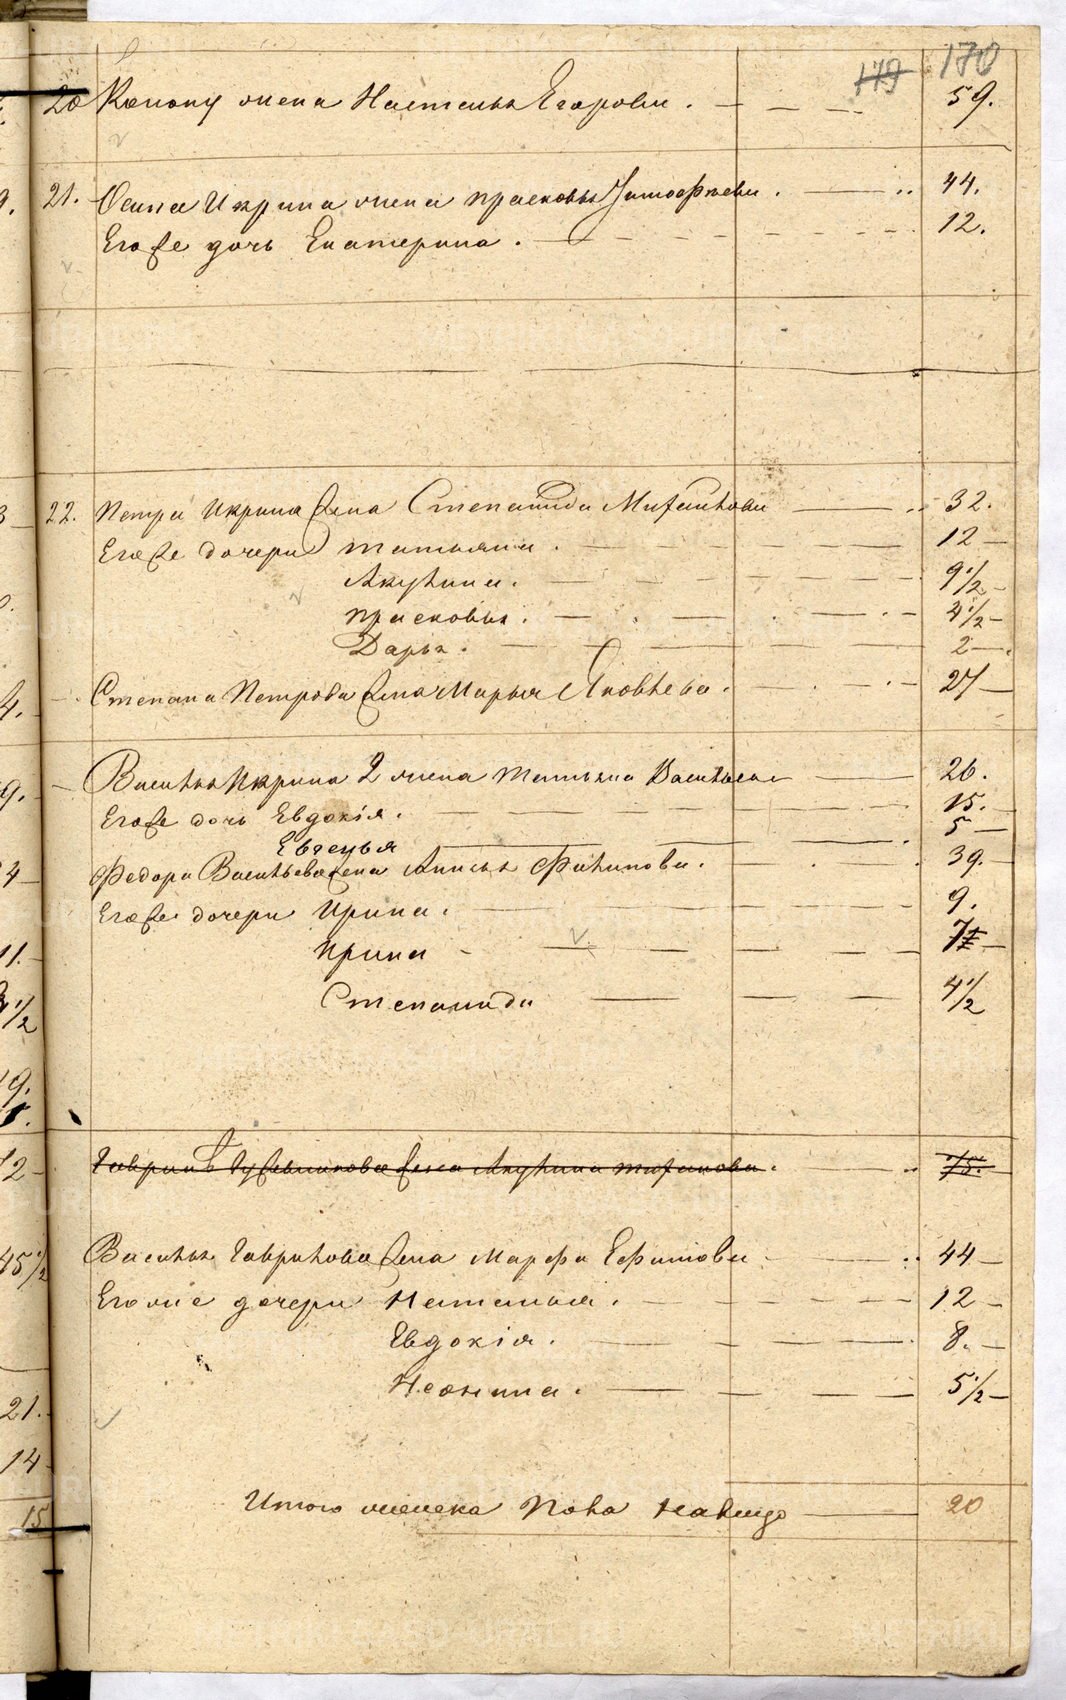 179 170
20 жена Наталья Егорова. 59.
21. Осипа Икрина жена прасковья Тимофѣева. 44.
Егоже дочь Екатерина. 12.
22. Петра Икрина жена Степанида Михайлова 32.
Егоже дочери татьяна. 12
Акулина. 9 1/2
прасковья. 4 1/2
Дарья. 2
Степана Петрова жена Марья Яковлева. 27
Василья Икрина 2 жена татьяна Васильева 26.
Егоже дочь Евдокія. 15.
Евгенья 5
Федора Васильева жена Анисья Филипова. 39.
Егоже дочери Ирина. 9.
Ирина 7
Степанида 4 1/2
жена Акулина 75.
Василья Гаврилова жена Марфа Ефимова 44
Егоже дочери Наталья. 12
Евдокія. 8.
Неонила. 5 1/2
Итого женска пола на лицо 20
3
4.
9.
4
11.
1/2
9.
12
45 1/2
21.
14
15